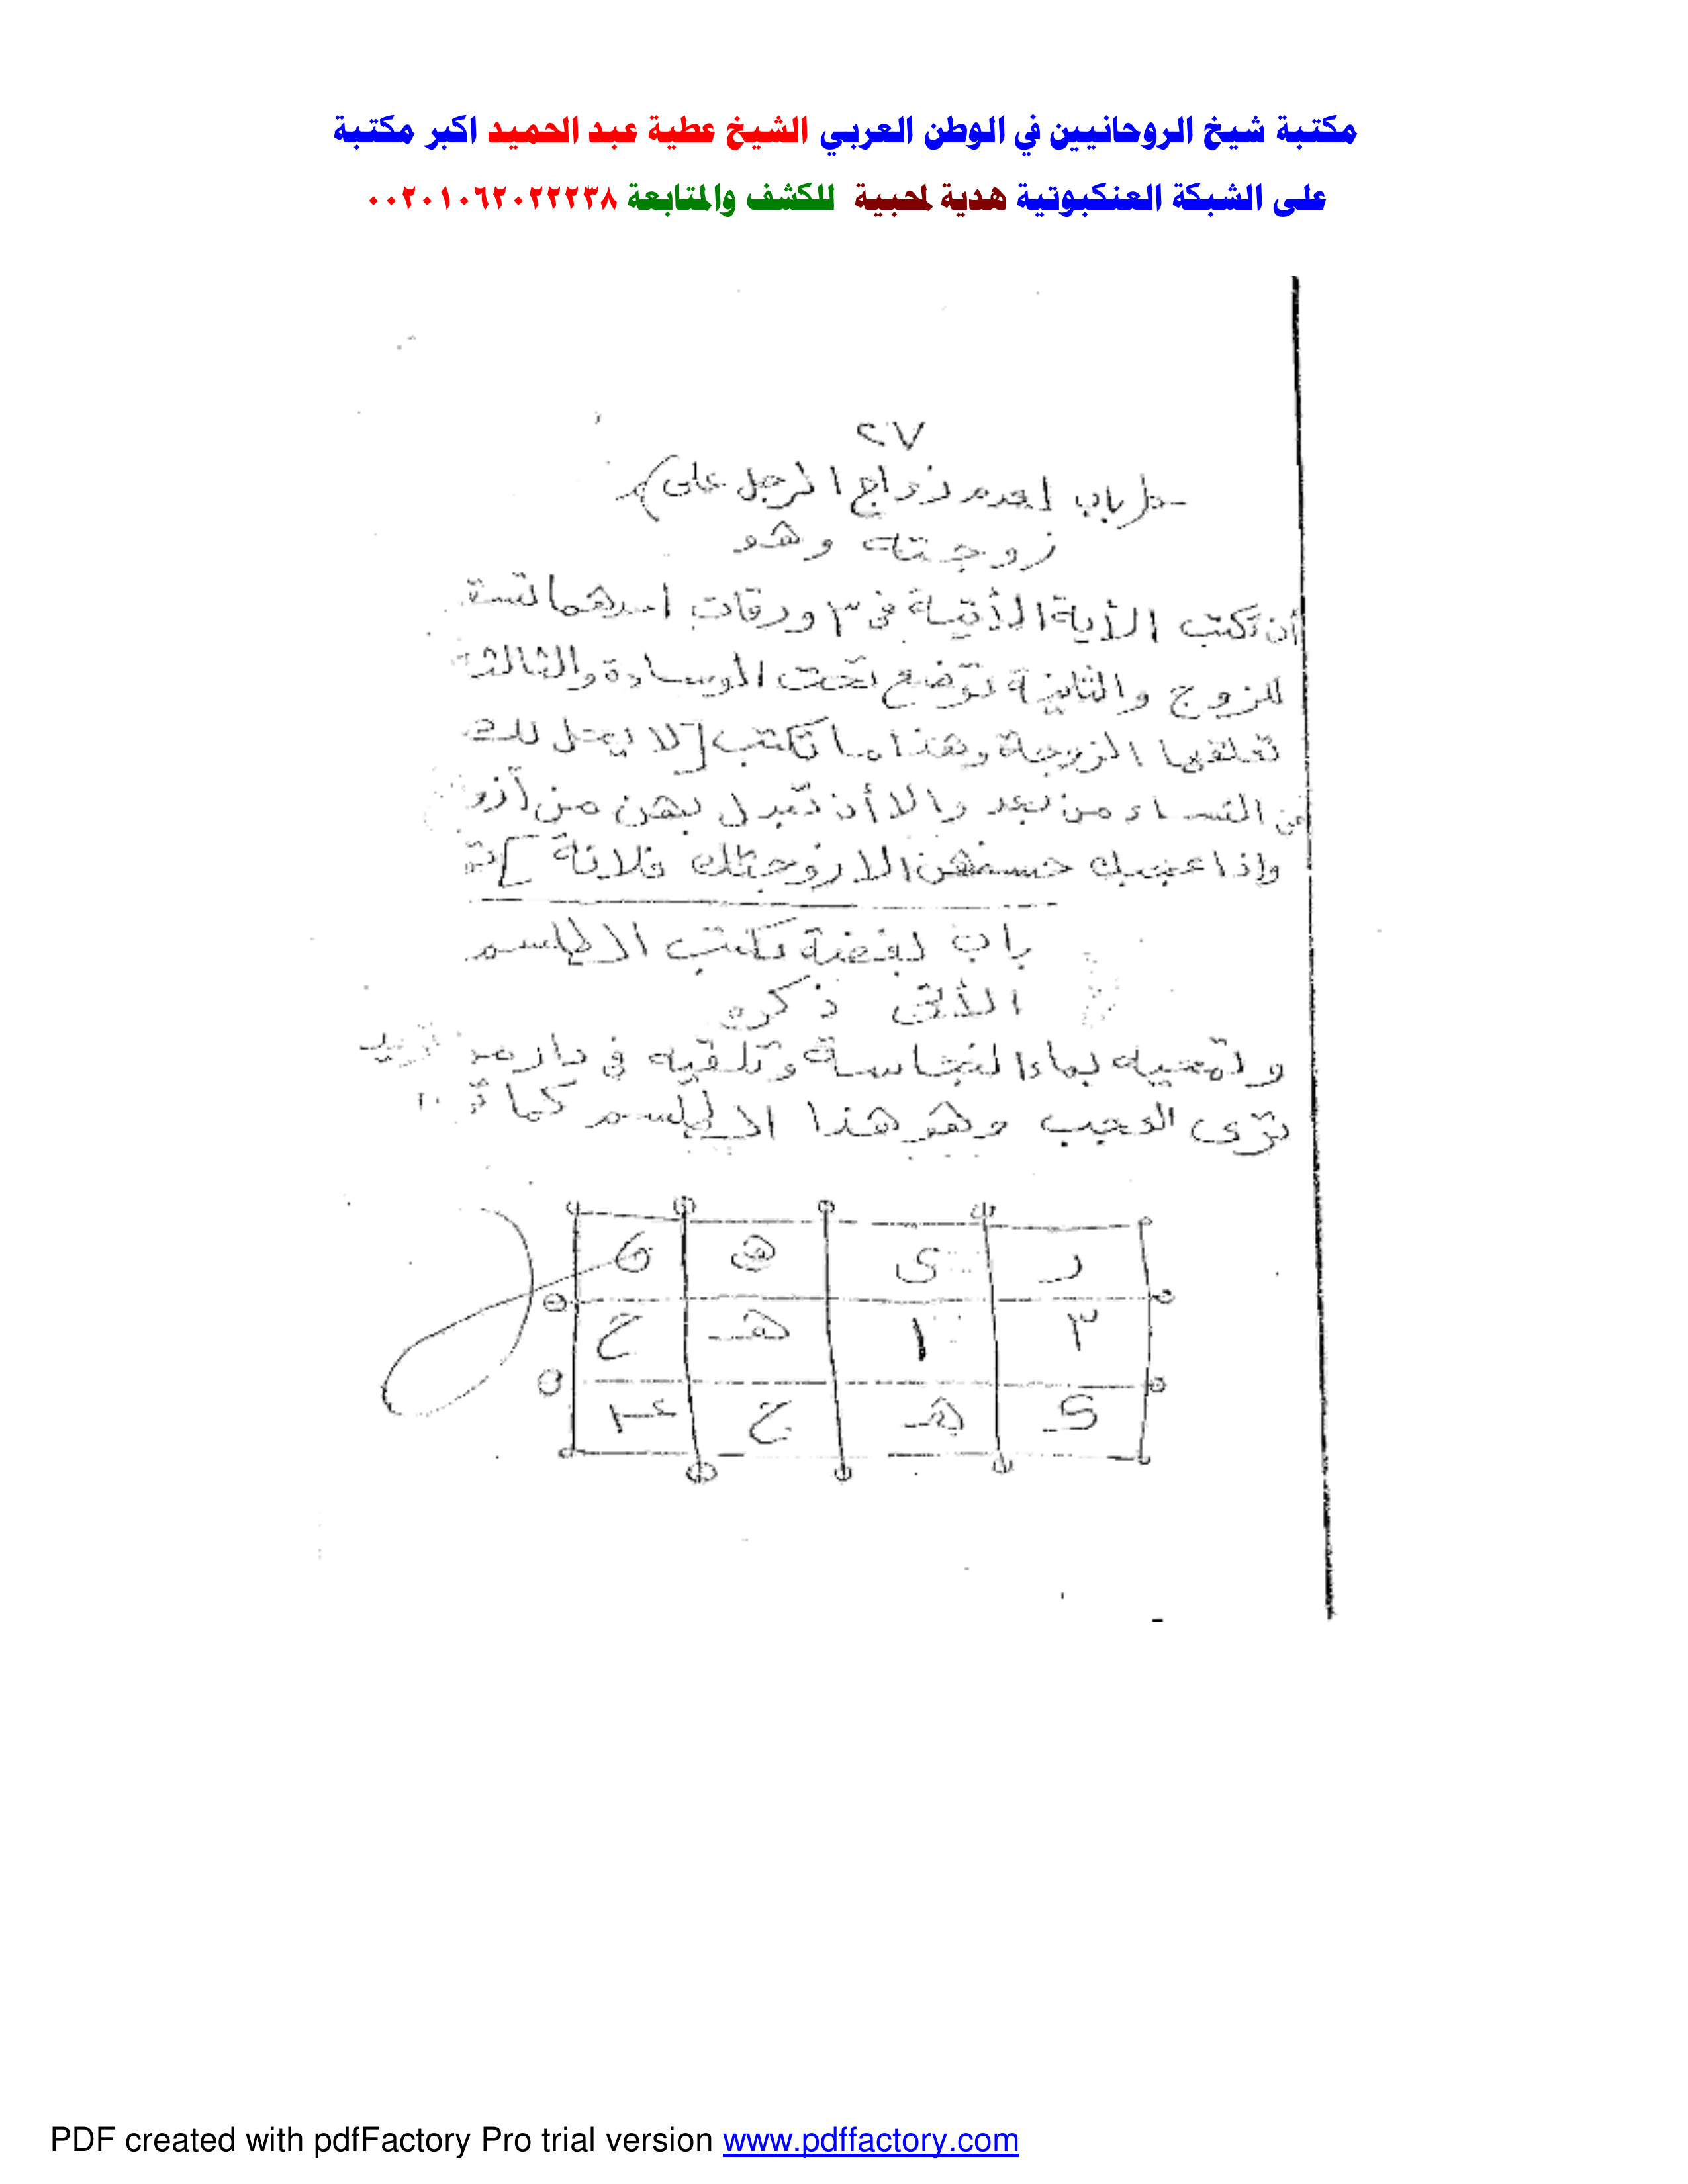 مكتبة شيخ الروحانيين في الوطن العربي الشيخ عطية عبد الحميد اكبر مكتبة
على الشبكة العنكبوتية هدية لمحبية للكشف والمتابعة ٠٠٢٠١٠٦٢٠٢٢٢٣٨
٢٧
باب لعدم زواج الرجل على
زوجته وهو
أن تكتب الأية الأتية فى ٣ ورقات احدهما تسقى
للزوج والثانية توضع تحت الوسادة والثالثة
تعلقها الزوجة وهذا ما تكتب [لا يحل لك
النساء من بعد ولا أن تبدل بهن من أزو
وإذا عجبك حسنهن الا زوجتك فلانة ]
باب لبغضة تكتب الطلسم
الأتى ذكره
وتمحيه بماء النجاسة وتلقيه فى دار من تريد
ترى العجب وهو هذا الطلسم كما
ر ى ھ ق
٣ ١ هـ ح
ك هـ ح
PDF created with pdfFactory Pro trial version www.pdffactory.com